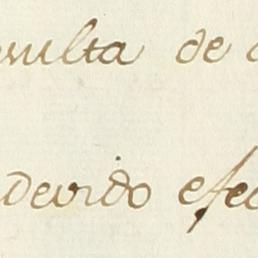 sulta de
devido efec